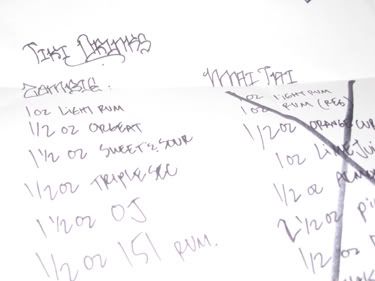 TIKI DRINKS
ZOMBIE:
1 oz LIGHT RUM
1/2 oz ORGEAT
1 1/2 oz SWEET & SOUR
1/2 oz TRIPLE SEC
1 1/2 oz OJ
1/2 oz 151 RUM.
MAI TAI
1 oz LIGHT RUM
1 oz RUM (REG)
1/2 oz ORANGE CUR
1 oz LIME JUI
1/2 oz ALMO
2 1/2 oz PI
1/2 oz